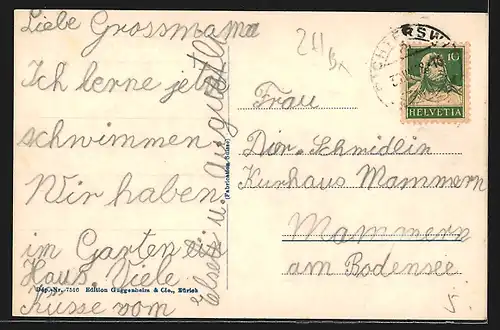 Liebe Grossmama
Ich lerne jetzt
schwimmen.
Wir haben
im Garten ein
Haus. Viele
Küsse vom
Elseli u. Augustli
(Fabrication Suisse)
Dép. Nr. 7516 Edition Guggenheim & Co., Zürich
Frau
Dir. Schmidlin
Kurhaus Mammern
Mammern
am Bodensee
10
HELVETIA
5